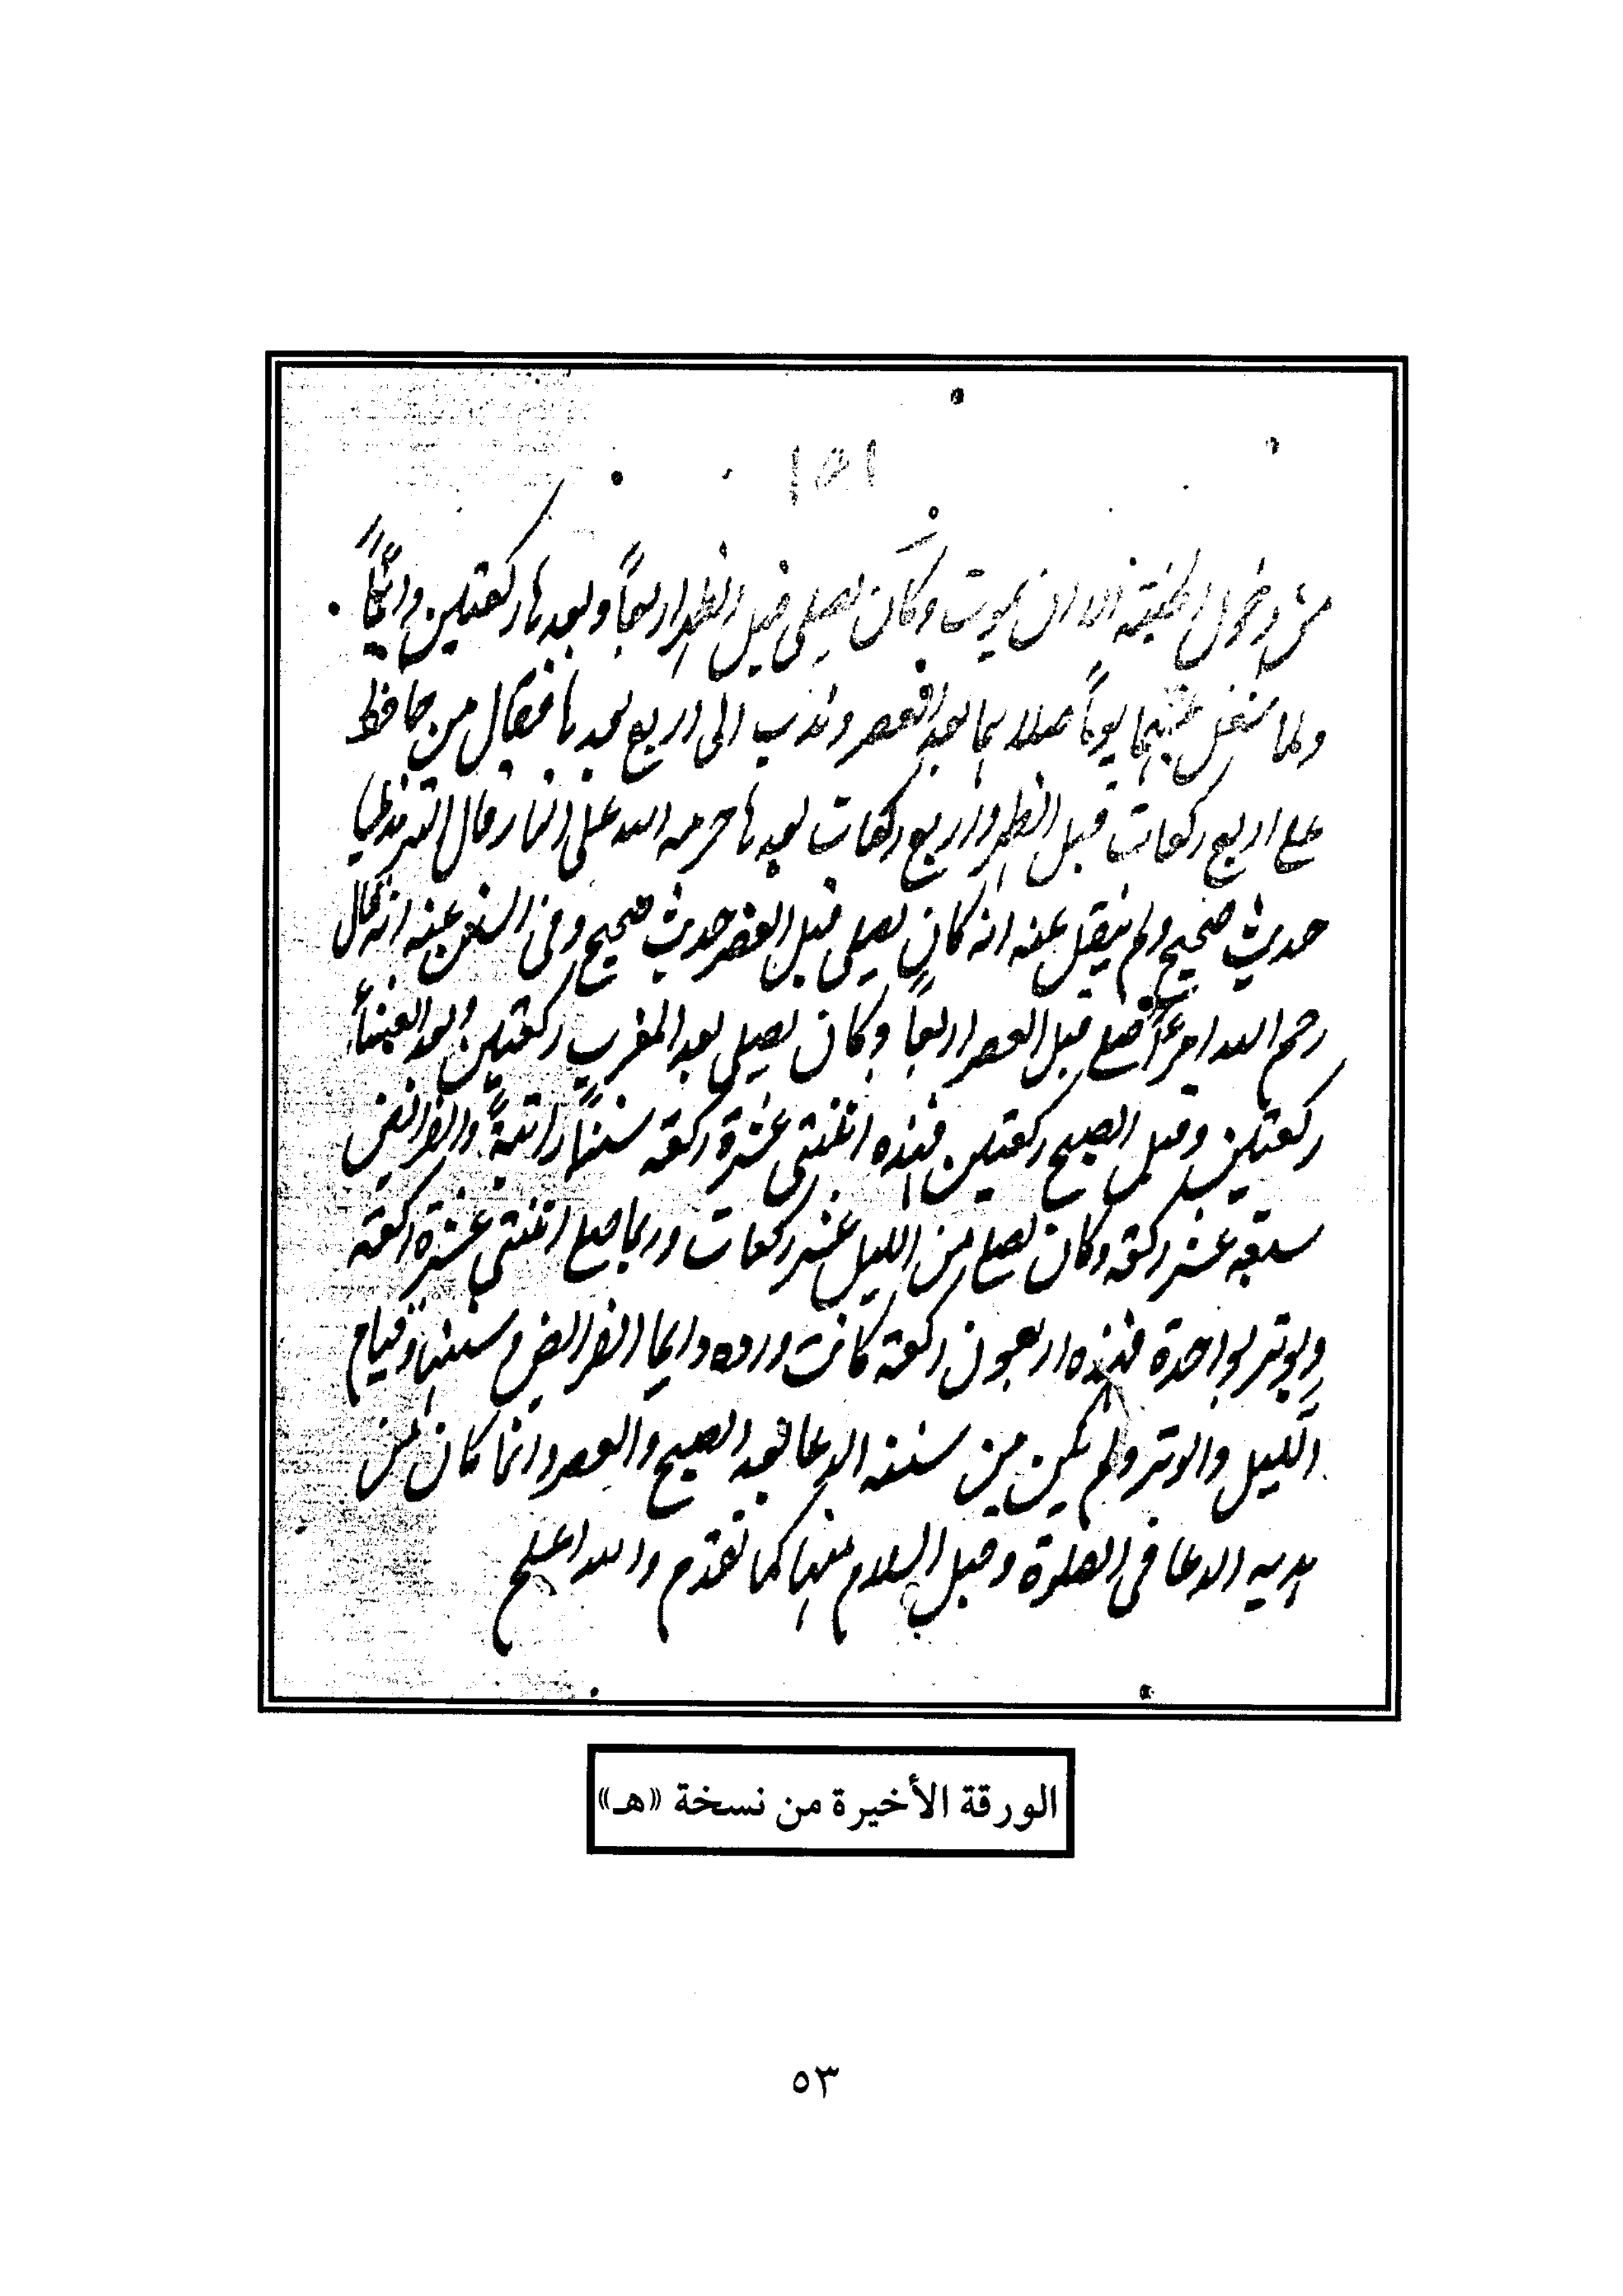 ١٥١
من دخول الجنة الا ان يموت وكان يصلي قبل الظهر اربعاً وبعدها ركعتين دائماً
ولما شغل عنهما يوماً صلاهما بعد العصر وندب الى اربع بعدها فقال من حافظ
على اربع ركعات قبل الظهر واربع ركعات بعدها حرمه الله على النار قال الترمذي
حديث صحيح ولم ينقل عنه انه كان يصلي قبل العصر حديث صحيح وفي السنن عنه انه قال
رحم الله امرءاً صلى قبل العصر اربعاً وكان يصلي بعد المغرب ركعتين وبعد العشاء
ركعتين وقبل الصبح ركعتين فهذه اثنتى عشرة ركعة سنناً راتبةً والفرائض
سبعة عشر ركعة وكان يصلي من الليل عشر ركعات وربما صلى اثنتى عشرة ركعة
ويوتر بواحدة فهذه اربعون ركعة كانت ورده دايما الفرائض وسننها وقيام
الليل والوتر ولم يكن من سننه الدعا بعد الصبح والعصر وانما كان من
هديه الدعا في الصلوة وقبل السلام منها كما تقدم والله اعلم
الورقة الأخيرة من نسخة «هـ»
٥٣